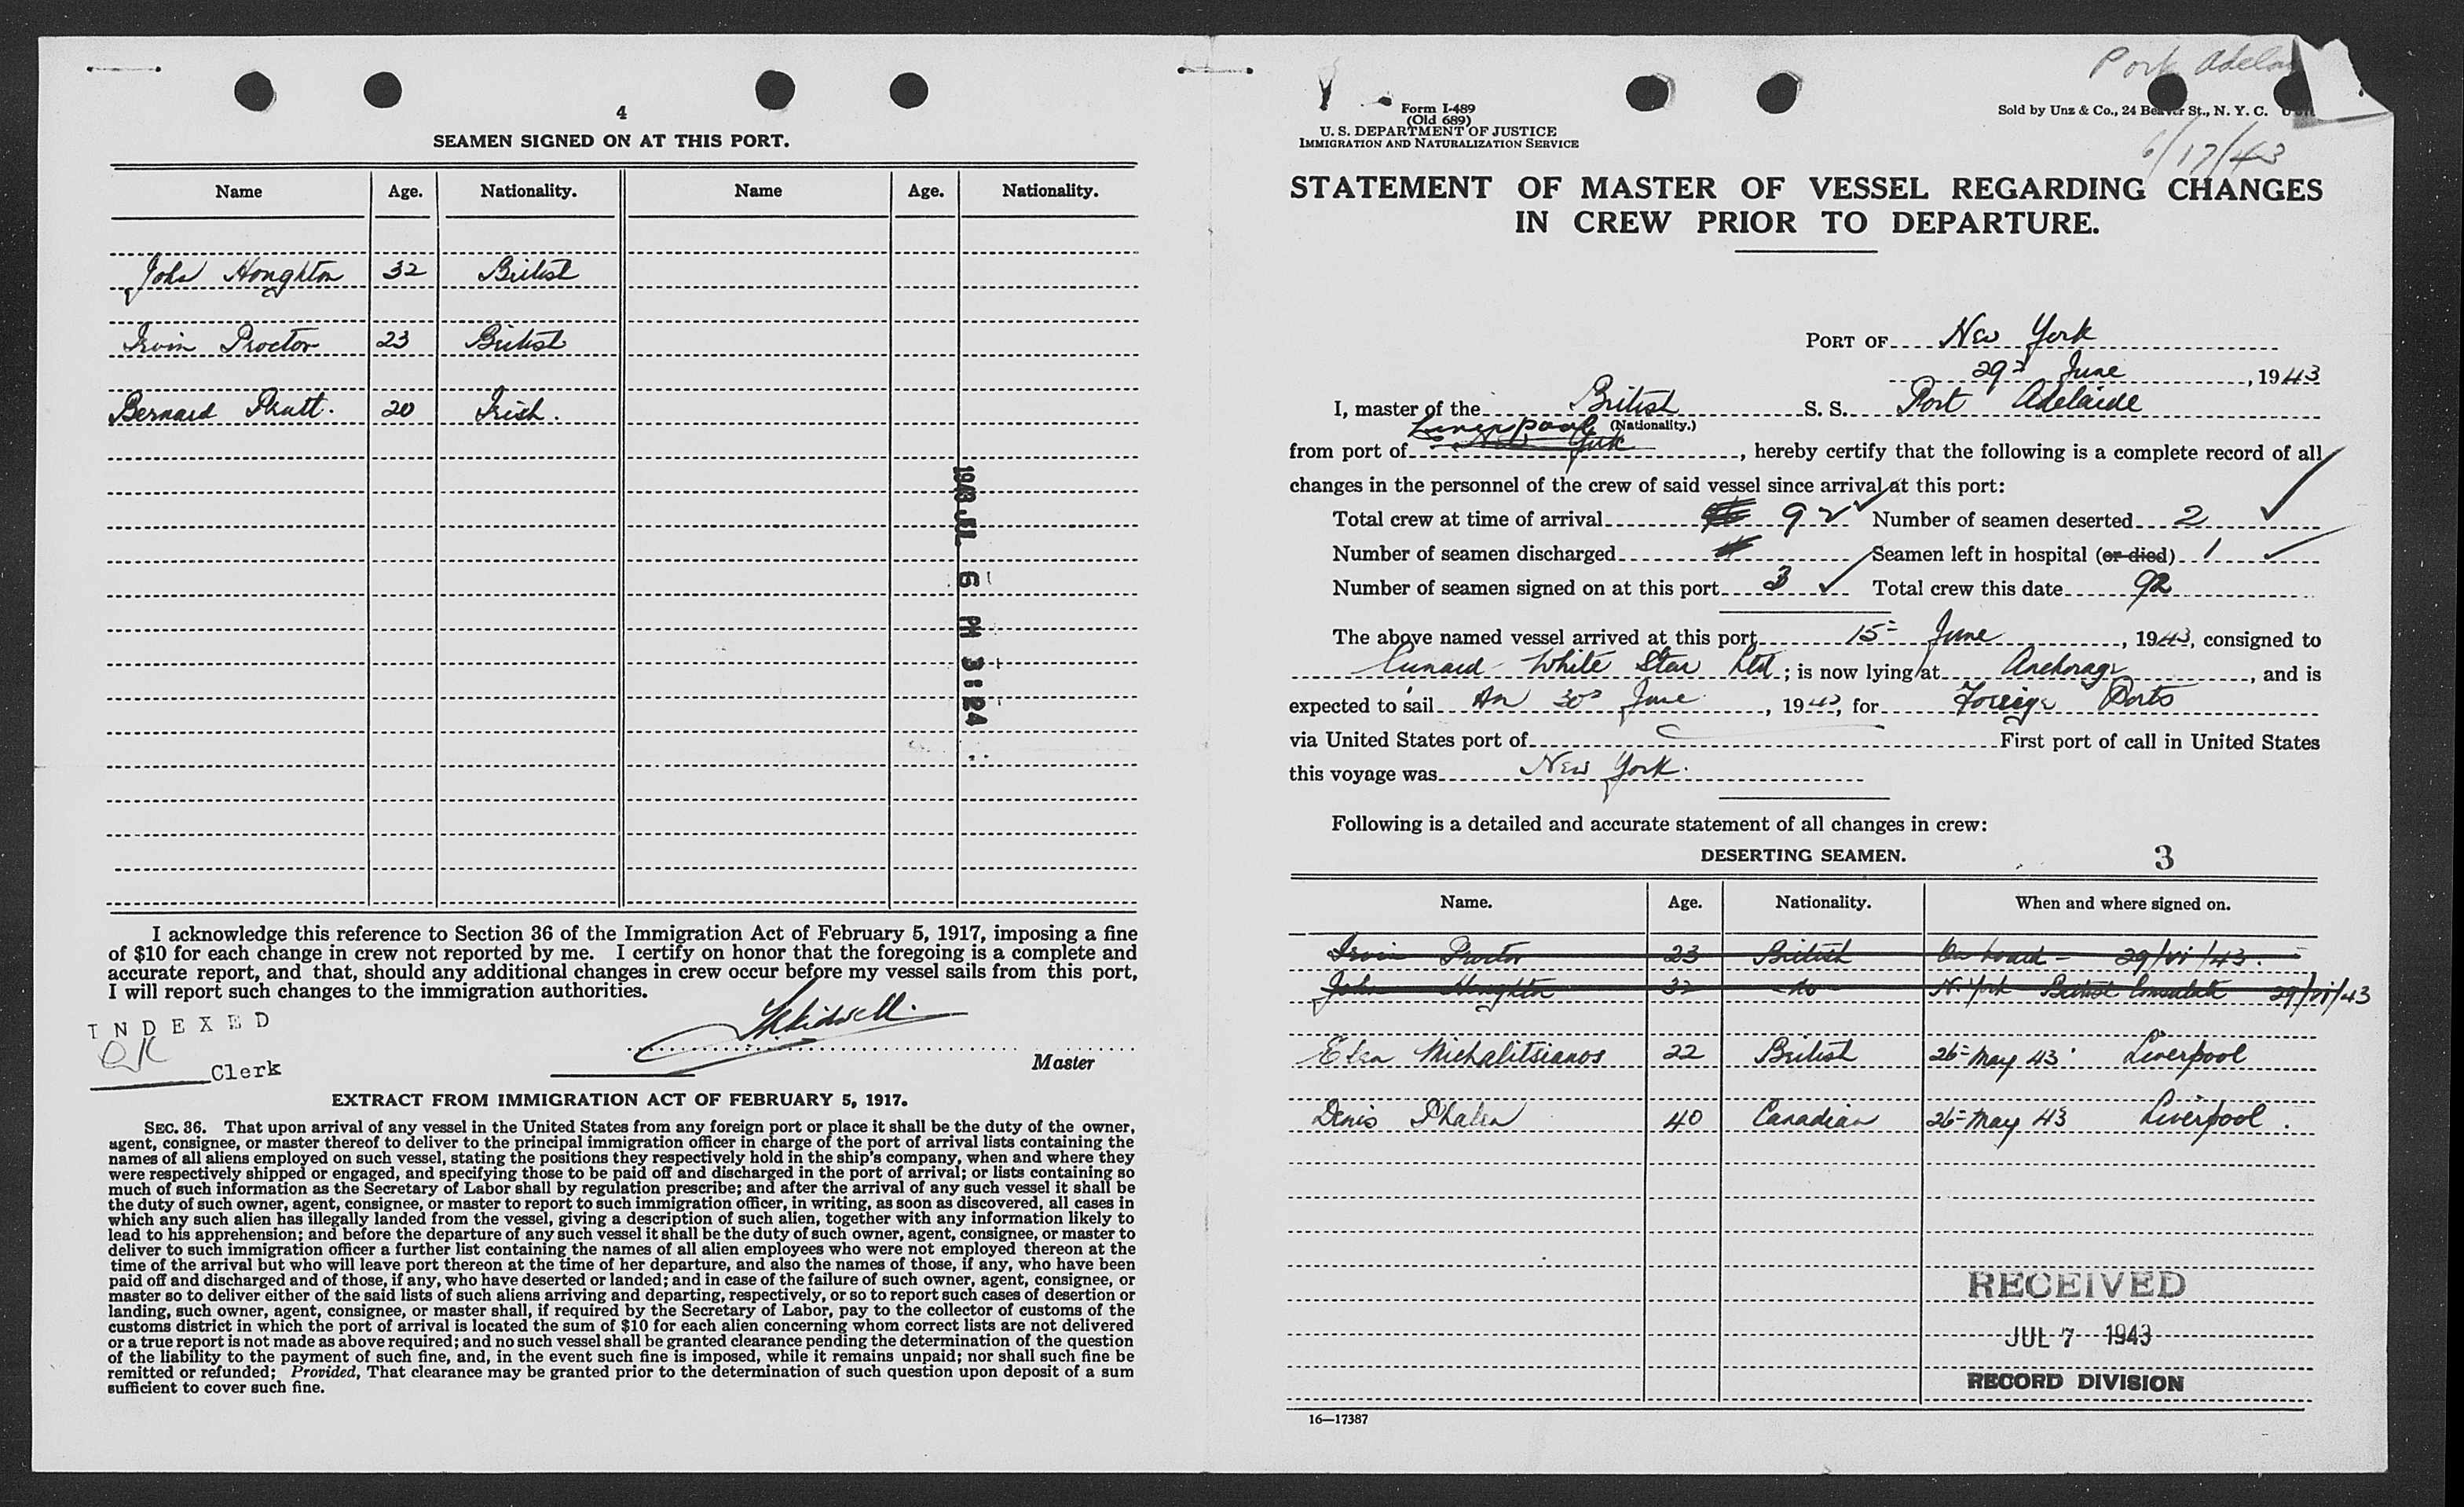 4
SEAMEN SIGNED ON AT THIS PORT.
Name Age. Nationality. Name Age. Nationality.
John Houghton 32 British
Irvin Proctor 23 British
Bernard Pratt. 20 Irish.
1943 JUL 6 PM 3:24
I acknowledge this reference to Section 36 of the Immigration Act of February 5, 1917, imposing a fine
of $10 for each change in crew not reported by me. I certify on honor that the foregoing is a complete and
accurate report, and that, should any additional changes in crew occur before my vessel sails from this port,
I will report such changes to the immigration authorities.
INDEXED
OK
Clerk
Master
EXTRACT FROM IMMIGRATION ACT OF FEBRUARY 5, 1917.
SEC. 36. That upon arrival of any vessel in the United States from any foreign port or place it shall be the duty of the owner,
agent, consignee, or master thereof to deliver to the principal immigration officer in charge of the port of arrival lists containing the
names of all aliens employed on such vessel, stating the positions they respectively hold in the ship's company, when and where they
were respectively shipped or engaged, and specifying those to be paid off and discharged in the port of arrival; or lists containing so
much of such information as the Secretary of Labor shall by regulation prescribe; and after the arrival of any such vessel it shall be
the duty of such owner, agent, consignee, or master to report to such immigration officer, in writing, as soon as discovered, all cases in
which any such alien has illegally landed from the vessel, giving a description of such alien, together with any information likely to
lead to his apprehension; and before the departure of any such vessel it shall be the duty of such owner, agent, consignee, or master to
deliver to such immigration officer a further list containing the names of all alien employees who were not employed thereon at the
time of the arrival but who will leave port thereon at the time of her departure, and also the names of those, if any, who have been
paid off and discharged and of those, if any, who have deserted or landed; and in case of the failure of such owner, agent, consignee, or
master so to deliver either of the said lists of such aliens arriving and departing, respectively, or so to report such cases of desertion or
landing, such owner, agent, consignee, or master shall, if required by the Secretary of Labor, pay to the collector of customs of the
customs district in which the port of arrival is located the sum of $10 for each alien concerning whom correct lists are not delivered
or a true report is not made as above required; and no such vessel shall be granted clearance pending the determination of the question
of the liability to the payment of such fine, and, in the event such fine is imposed, while it remains unpaid; nor shall such fine be
remitted or refunded; Provided, That clearance may be granted prior to the determination of such question upon deposit of a sum
sufficient to cover such fine.
Port Adelai
6/17/43
Form I-489
(Old 689)
U. S. DEPARTMENT OF JUSTICE
IMMIGRATION AND NATURALIZATION SERVICE
Sold by Unz & Co., 24 Beaver St., N. Y. C.
STATEMENT OF MASTER OF VESSEL REGARDING CHANGES
IN CREW PRIOR TO DEPARTURE.
PORT OF New York
29th June, 1943
I, master of the British S. S. Port Adelaide
(Nationality.)
Liverpool
from port of New York, hereby certify that the following is a complete record of all
changes in the personnel of the crew of said vessel since arrival at this port:
Total crew at time of arrival 92 Number of seamen deserted 2
Number of seamen discharged Seamen left in hospital (or died) 1
Number of seamen signed on at this port 3 Total crew this date 92
The above named vessel arrived at this port 15th June, 1943, consigned to
Cunard White Star Ltd; is now lying at Anchorage, and is
expected to sail 30th June, 1943, for Foreign Ports
via United States port of First port of call in United States
this voyage was New York.
Following is a detailed and accurate statement of all changes in crew:
DESERTING SEAMEN. 3
Name. Age. Nationality. When and where signed on.
Irvin Proctor 23 British On board - 29/vi/43.
John Houghton 32 -do- N. York British Consulate 29/vi/43
Michalitsianos 22 British 26th May 43 Liverpool
Denis Phalen 40 Canadian 26th May 43 Liverpool.
RECEIVED
JUL 7 1943
RECORD DIVISION
16—17387